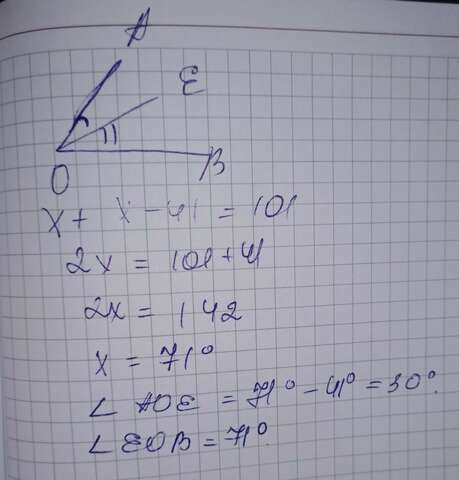 A
E
O
B
x + x - 41 = 101
2x = 101 + 41
2x = 142
x = 71°
∠ AOE = 71° - 41° = 30°.
∠ EOB = 71°